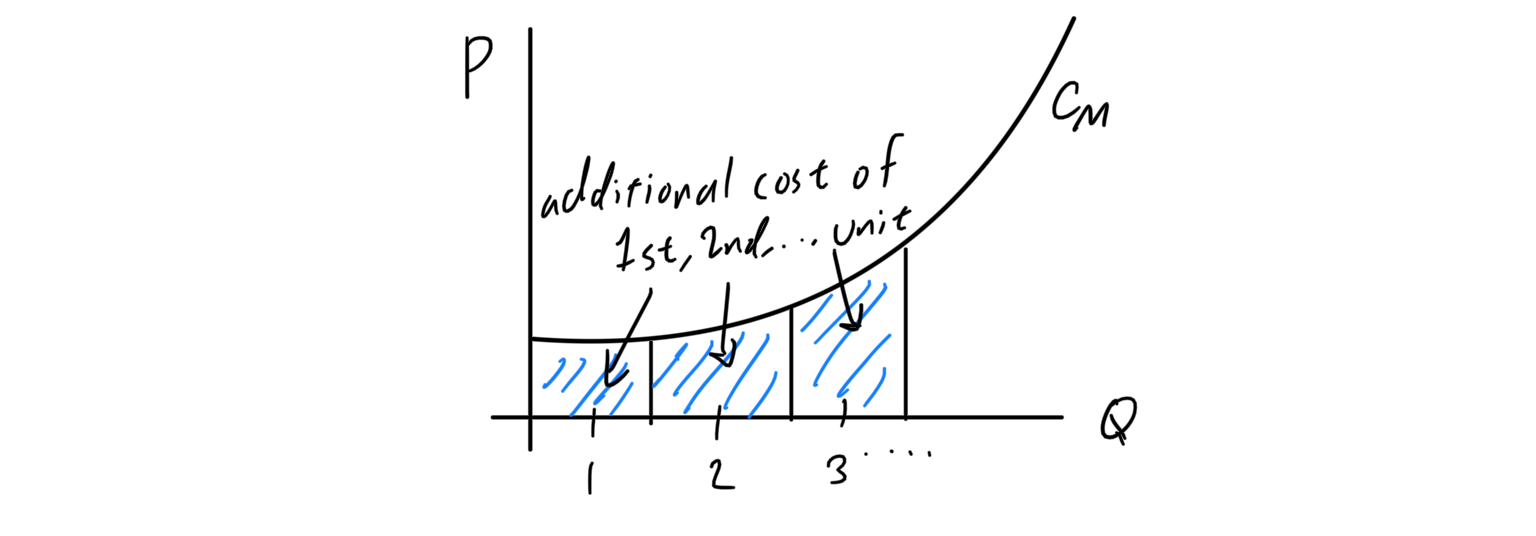 P
C_M
additional cost of
1st, 2nd, ... unit
Q
1 2 3 ....